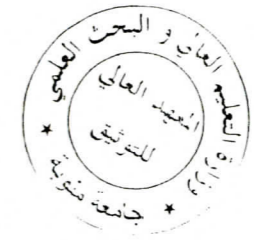 وزارة التعليم العالي و البحث العلمي
المعهد العالي
للتوثيق
* جامعة منوبة *